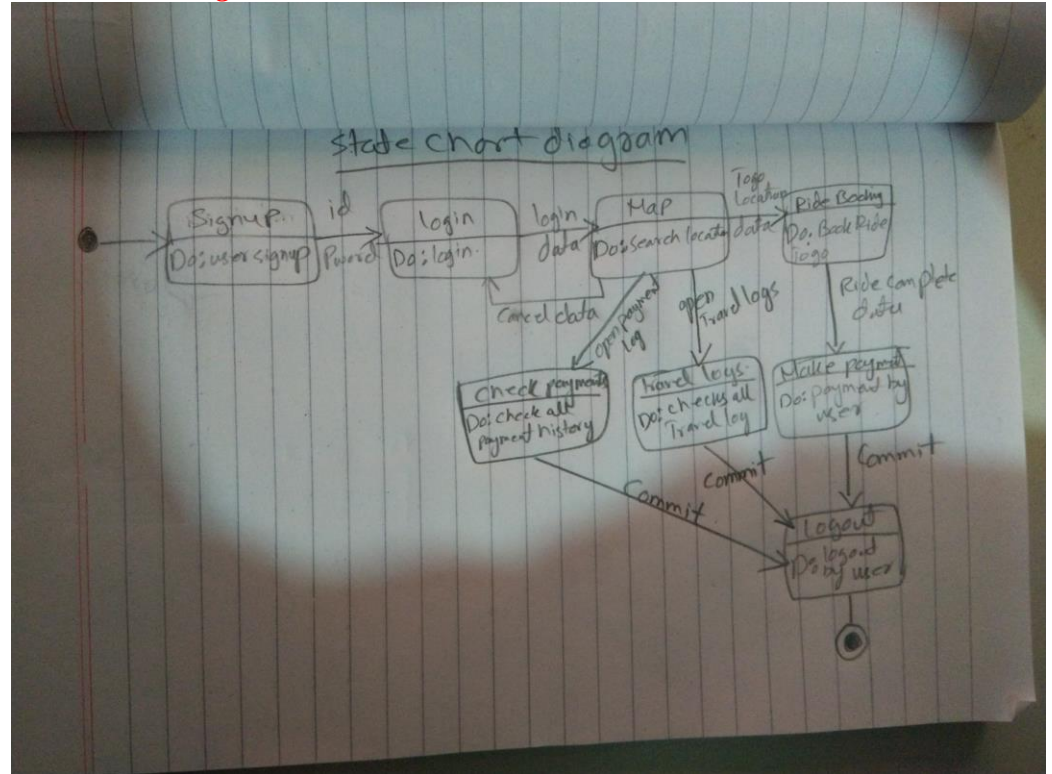 state chart diagram
Signup
Do: user signup
id
Pword
login
Do: login.
login
data
Map
Do: search locate
Togo
Location
data
Ride Booking
Do: Book Ride
togo
Cancel data
open payment
log
open
Travel logs
Ride complete
data
Check payments
Do: check all
payment history
travel logs.
Do: checks all
Travel log
Make payment
Do: payment by
user
Commit
Commit
Commit
Logout
Do: logout
by user